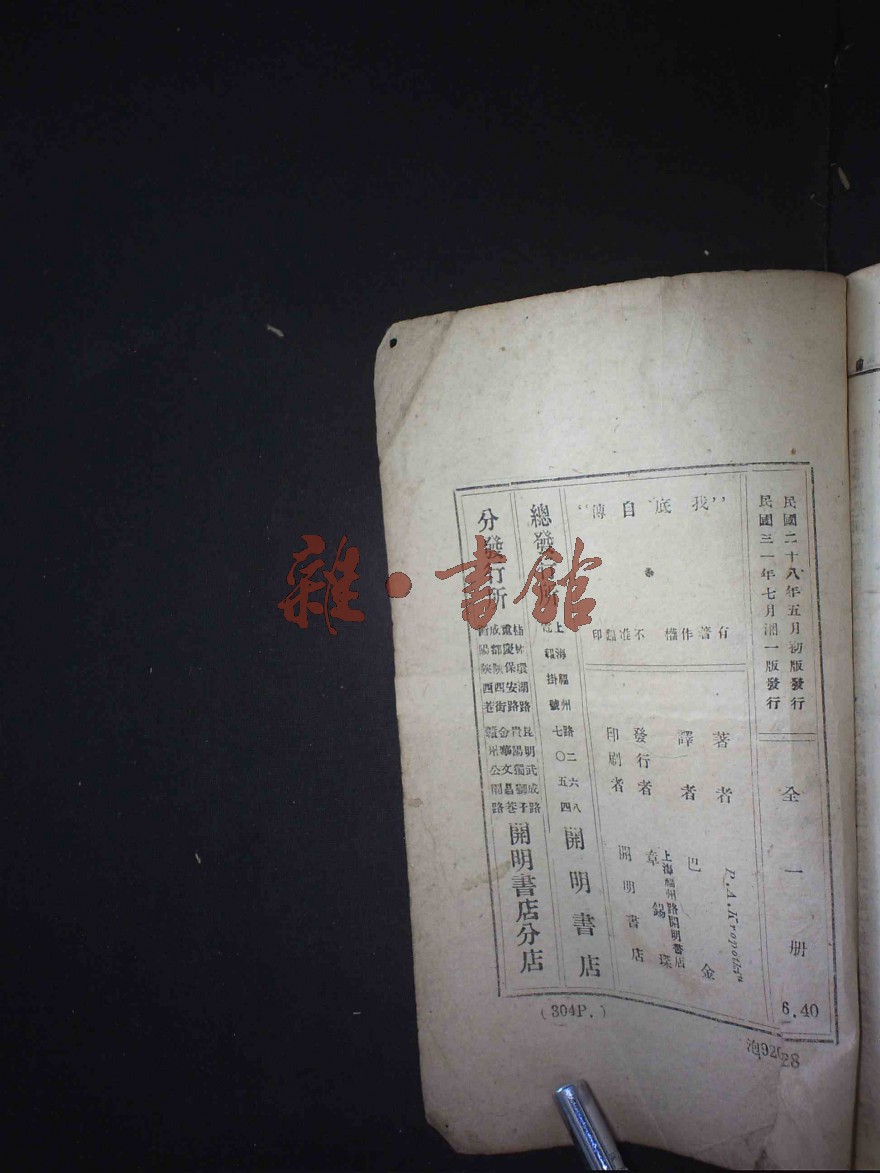 民國二十八年五月初版發行
民國三一年七月湘一版發行
全一册
6.40
“我底自傳”
有著作權 不准翻印
著者 P.A.Kropotkin
譯者 巴金
發行者 上海福州路開明書店
章錫琛
印刷者 開明書店
總發行所
上海福州路二六八
電報掛號七〇五四
開明書店
分發行所
桂林環湖路
重慶保安路
成都陝西街
衡陽陝西巷
民明武成路
貴陽獨獅子
金華文昌巷
贛州公園路
開明書店分店
(304P.)
28
雜·書館